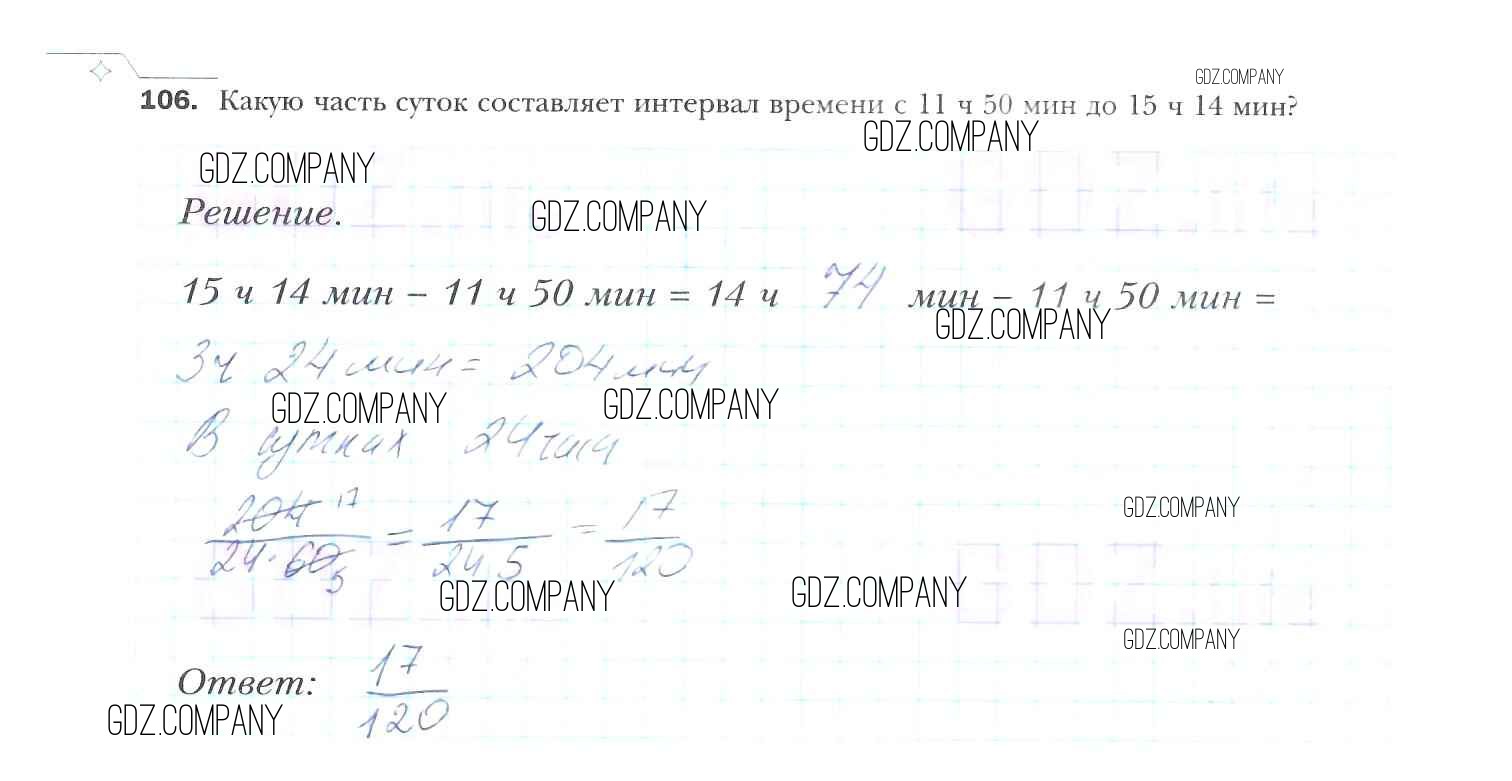 GDZ.COMPANY
106. Какую часть суток составляет интервал времени с 11 ч 50 мин до 15 ч 14 мин?
GDZ.COMPANY
GDZ.COMPANY
Решение.
GDZ.COMPANY
15 ч 14 мин – 11 ч 50 мин = 14 ч 74 мин – 11 ч 50 мин =
GDZ.COMPANY
3ч 24 мин = 204 мин
GDZ.COMPANY GDZ.COMPANY
В сутках 24 часа
204 17 / 24 · 60 5 = 17 / 24 · 5 = 17 / 120
GDZ.COMPANY
GDZ.COMPANY GDZ.COMPANY
GDZ.COMPANY
Ответ: 17 / 120
GDZ.COMPANY